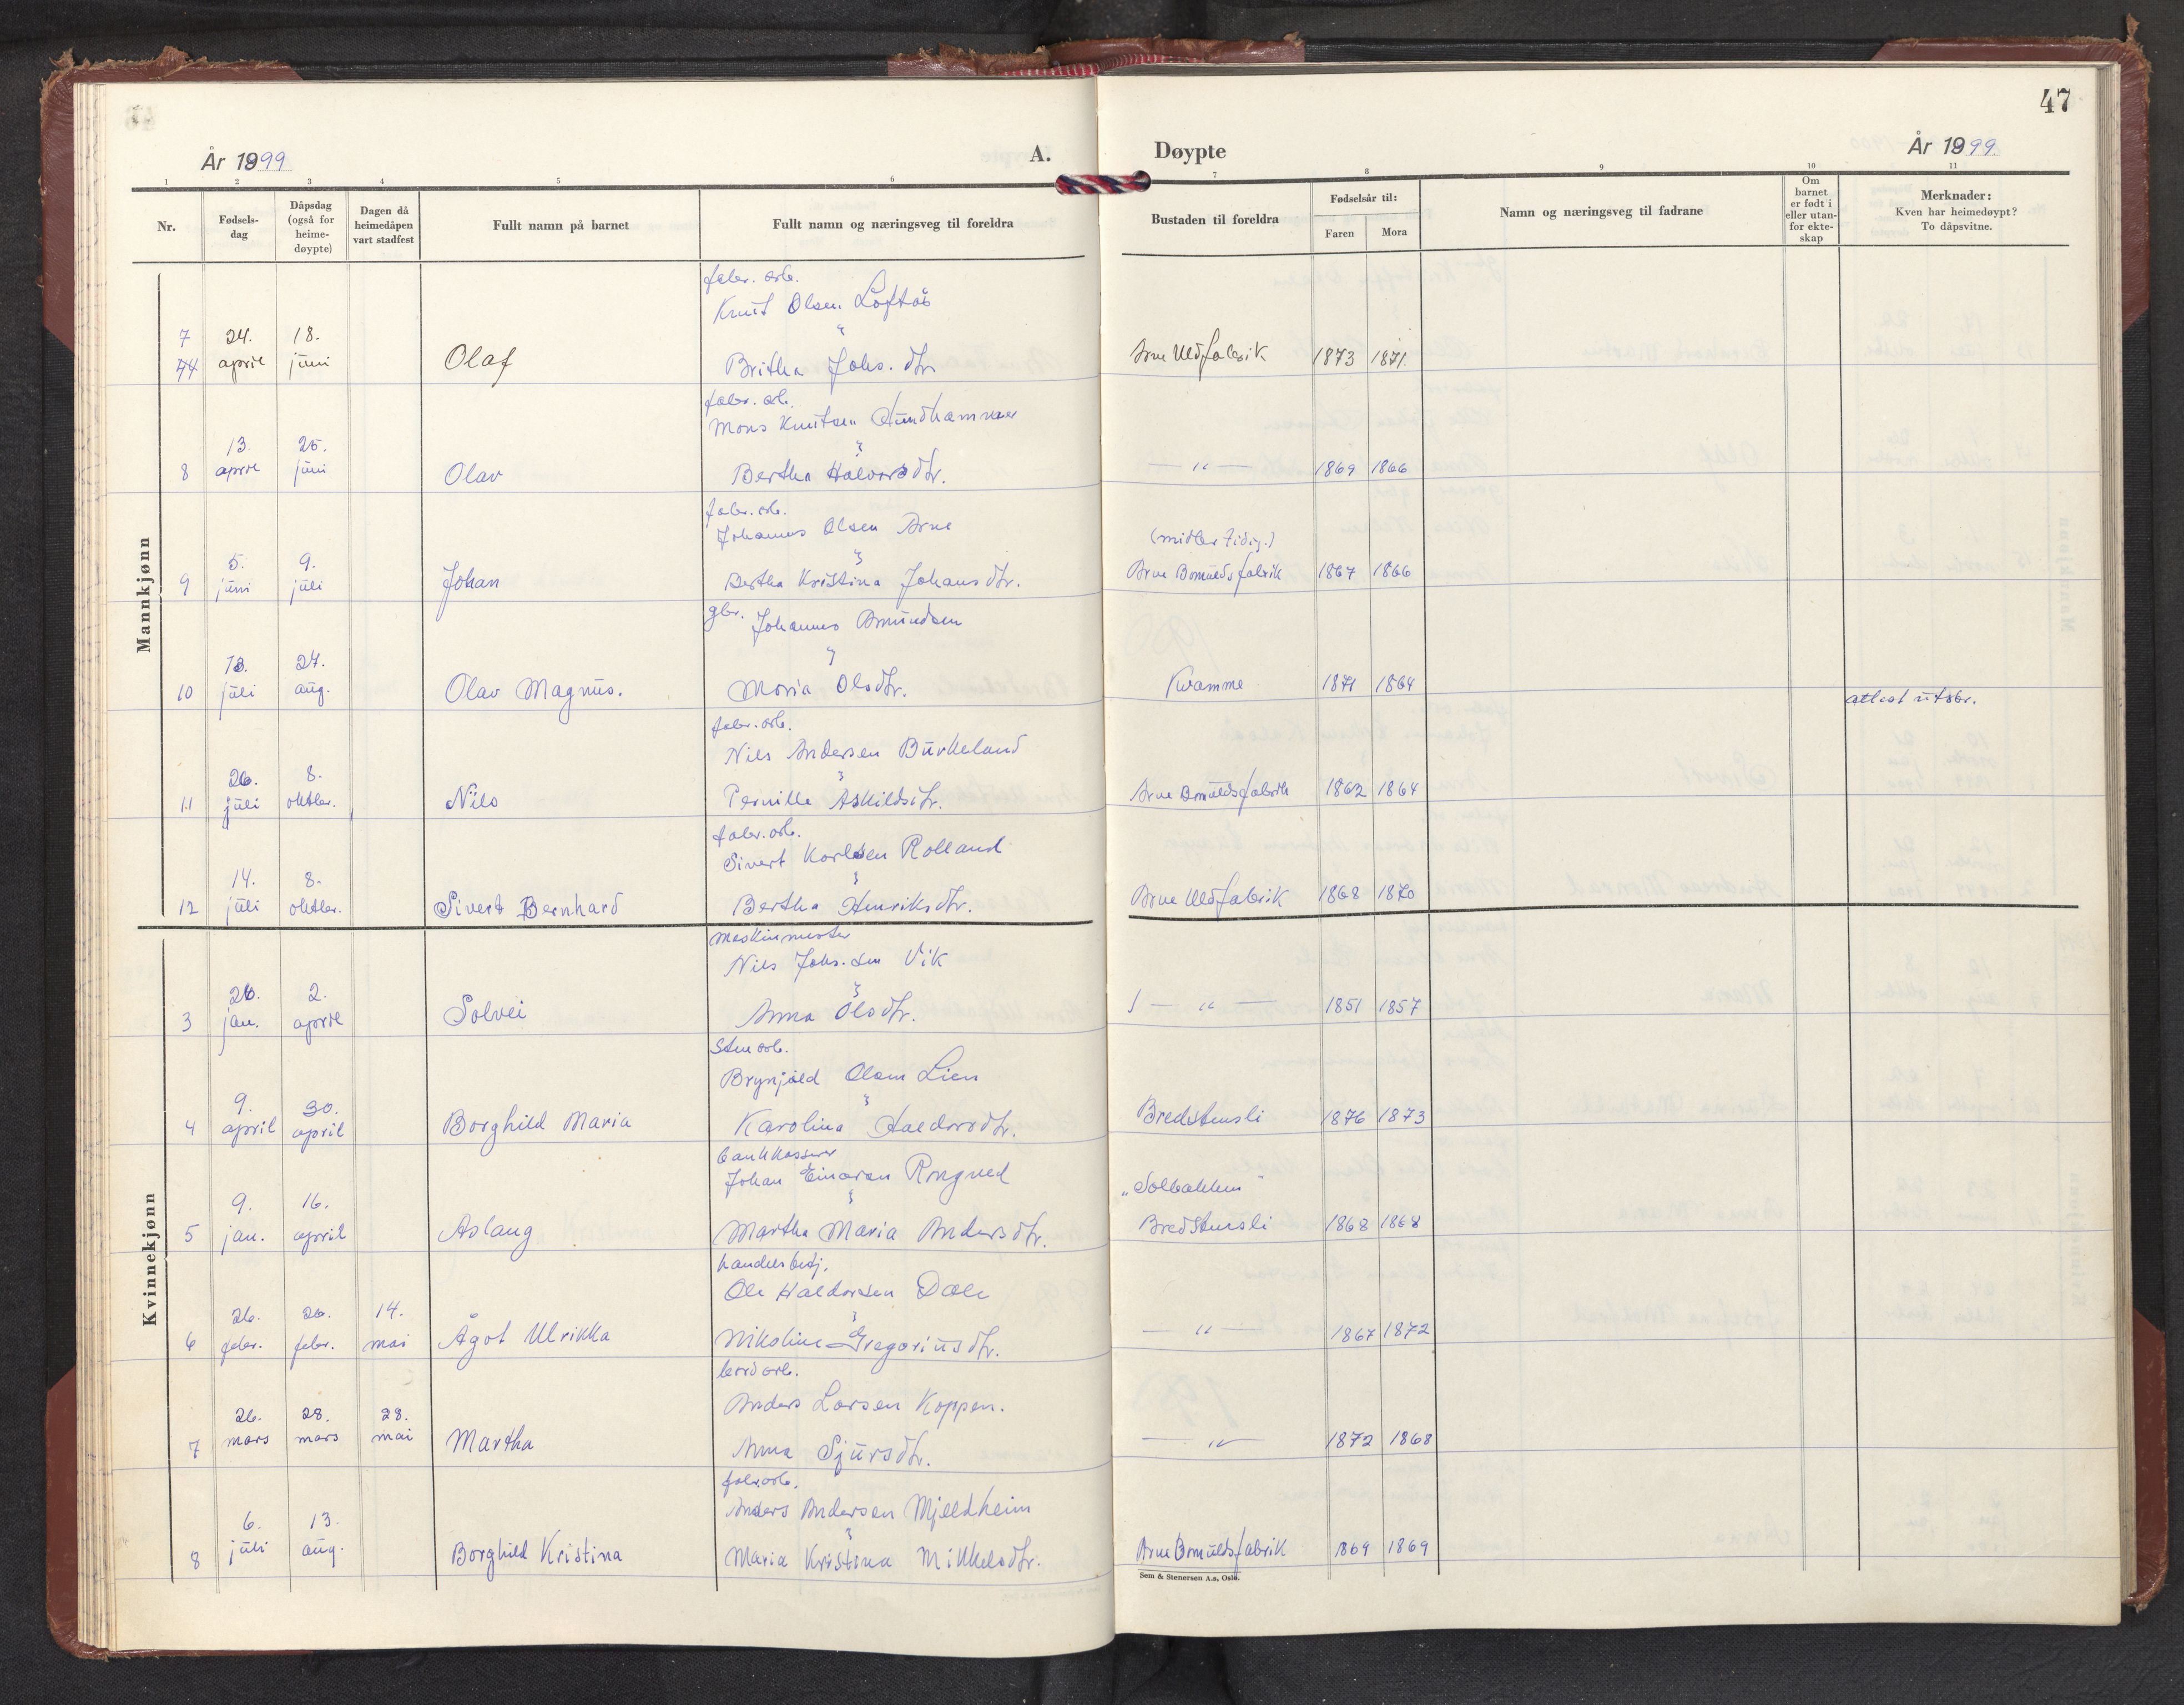 47
År 1899
A.
Døypte
År 1899.
1 2 3 4 5 6 7 8 9 10 11
Nr.
Fødsels-
dag
Dåpsdag
(også for
heime-
døypte)
Dagen då
heimedåpen
vart stadfest
Fullt namn på barnet
Fullt namn og næringsveg til foreldra
Bustaden til foreldra
Fødselsår til:
Faren Mora
Namn og næringsveg til fadrane
Om
barnet
er født i
eller utan-
for ekte-
skap
Merknader:
Kven har heimedøypt?
To dåpsvitne.
Mannkjønn
fabr. arb.
Knut Olsen Loftås
7 24. 18.
april juni Olaf Britha Johs. dtr. Arne Uldfabrik 1873 1871.
fabr. arb.
Mons Knutsen Hundhammer
13. 25.
8 april juni Olav Bertha Halvorsdtr. — " — 1869 1866
fabr. arb.
Johannes Olsen Arne
(midlertidig.)
5. 9.
9 juni juli Johan Bertha Kristina Johansdtr. Arne Bomuldsfabrik 1867 1866
gbr. Johannes Amundsen
13. 24.
10 juli aug. Olav Magnus. Maria Olsdtr. Kvamme 1871 1864
attest utskr.
fabr. arb.
Nils Andersen Burkeland
26. 8.
11 juli oktbr. Nils Pernille Askildsdtr. Arne Bomuldsfabrik 1862 1864
fabr. arb.
Sivert Karlsen Rolland
14. 8.
12 juli oktbr. Sivert Bernhard Bertha Henriksdtr. Arne Uldfabrik 1868 1870
Kvinnekjønn
maskinmester
Nils Johs.sen Vik
26. 2.
3 jan. april Solvei Anna Olsdtr. — " — 1851 1857
Stenarb.
Brynjuld Olsen Lien
9. 30.
4 april april Borghild Maria Karolina Haldorsdtr. Bredstensli 1876 1873
bankkasserer
Johan Einarsen Ringved
"Solbakken"
9. 16.
5 jan. april Aslaug Martha Maria Andersdtr. Bredstensli 1868 1868
handelsbetj.
Ole Haldorsen Dale
26. 26. 14.
6 febr. febr. mai Ågot Ulrikka Nikoline Gregoriusdtr. — " — 1867 1872
jordarb.
Anders Larsen Koppen.
26. 28. 28.
7 mars mars mai Martha Anna Sjursdtr. — " — 1872 1868
fabr.arb.
Anders Andersen Mjeldheim
6. 13.
8 juli aug. Borghild Kristina Maria Kristina Mikkelsdtr. Arne Bomuldsfabrik 1869 1869
Sem & Stenersen A.s, Oslo.